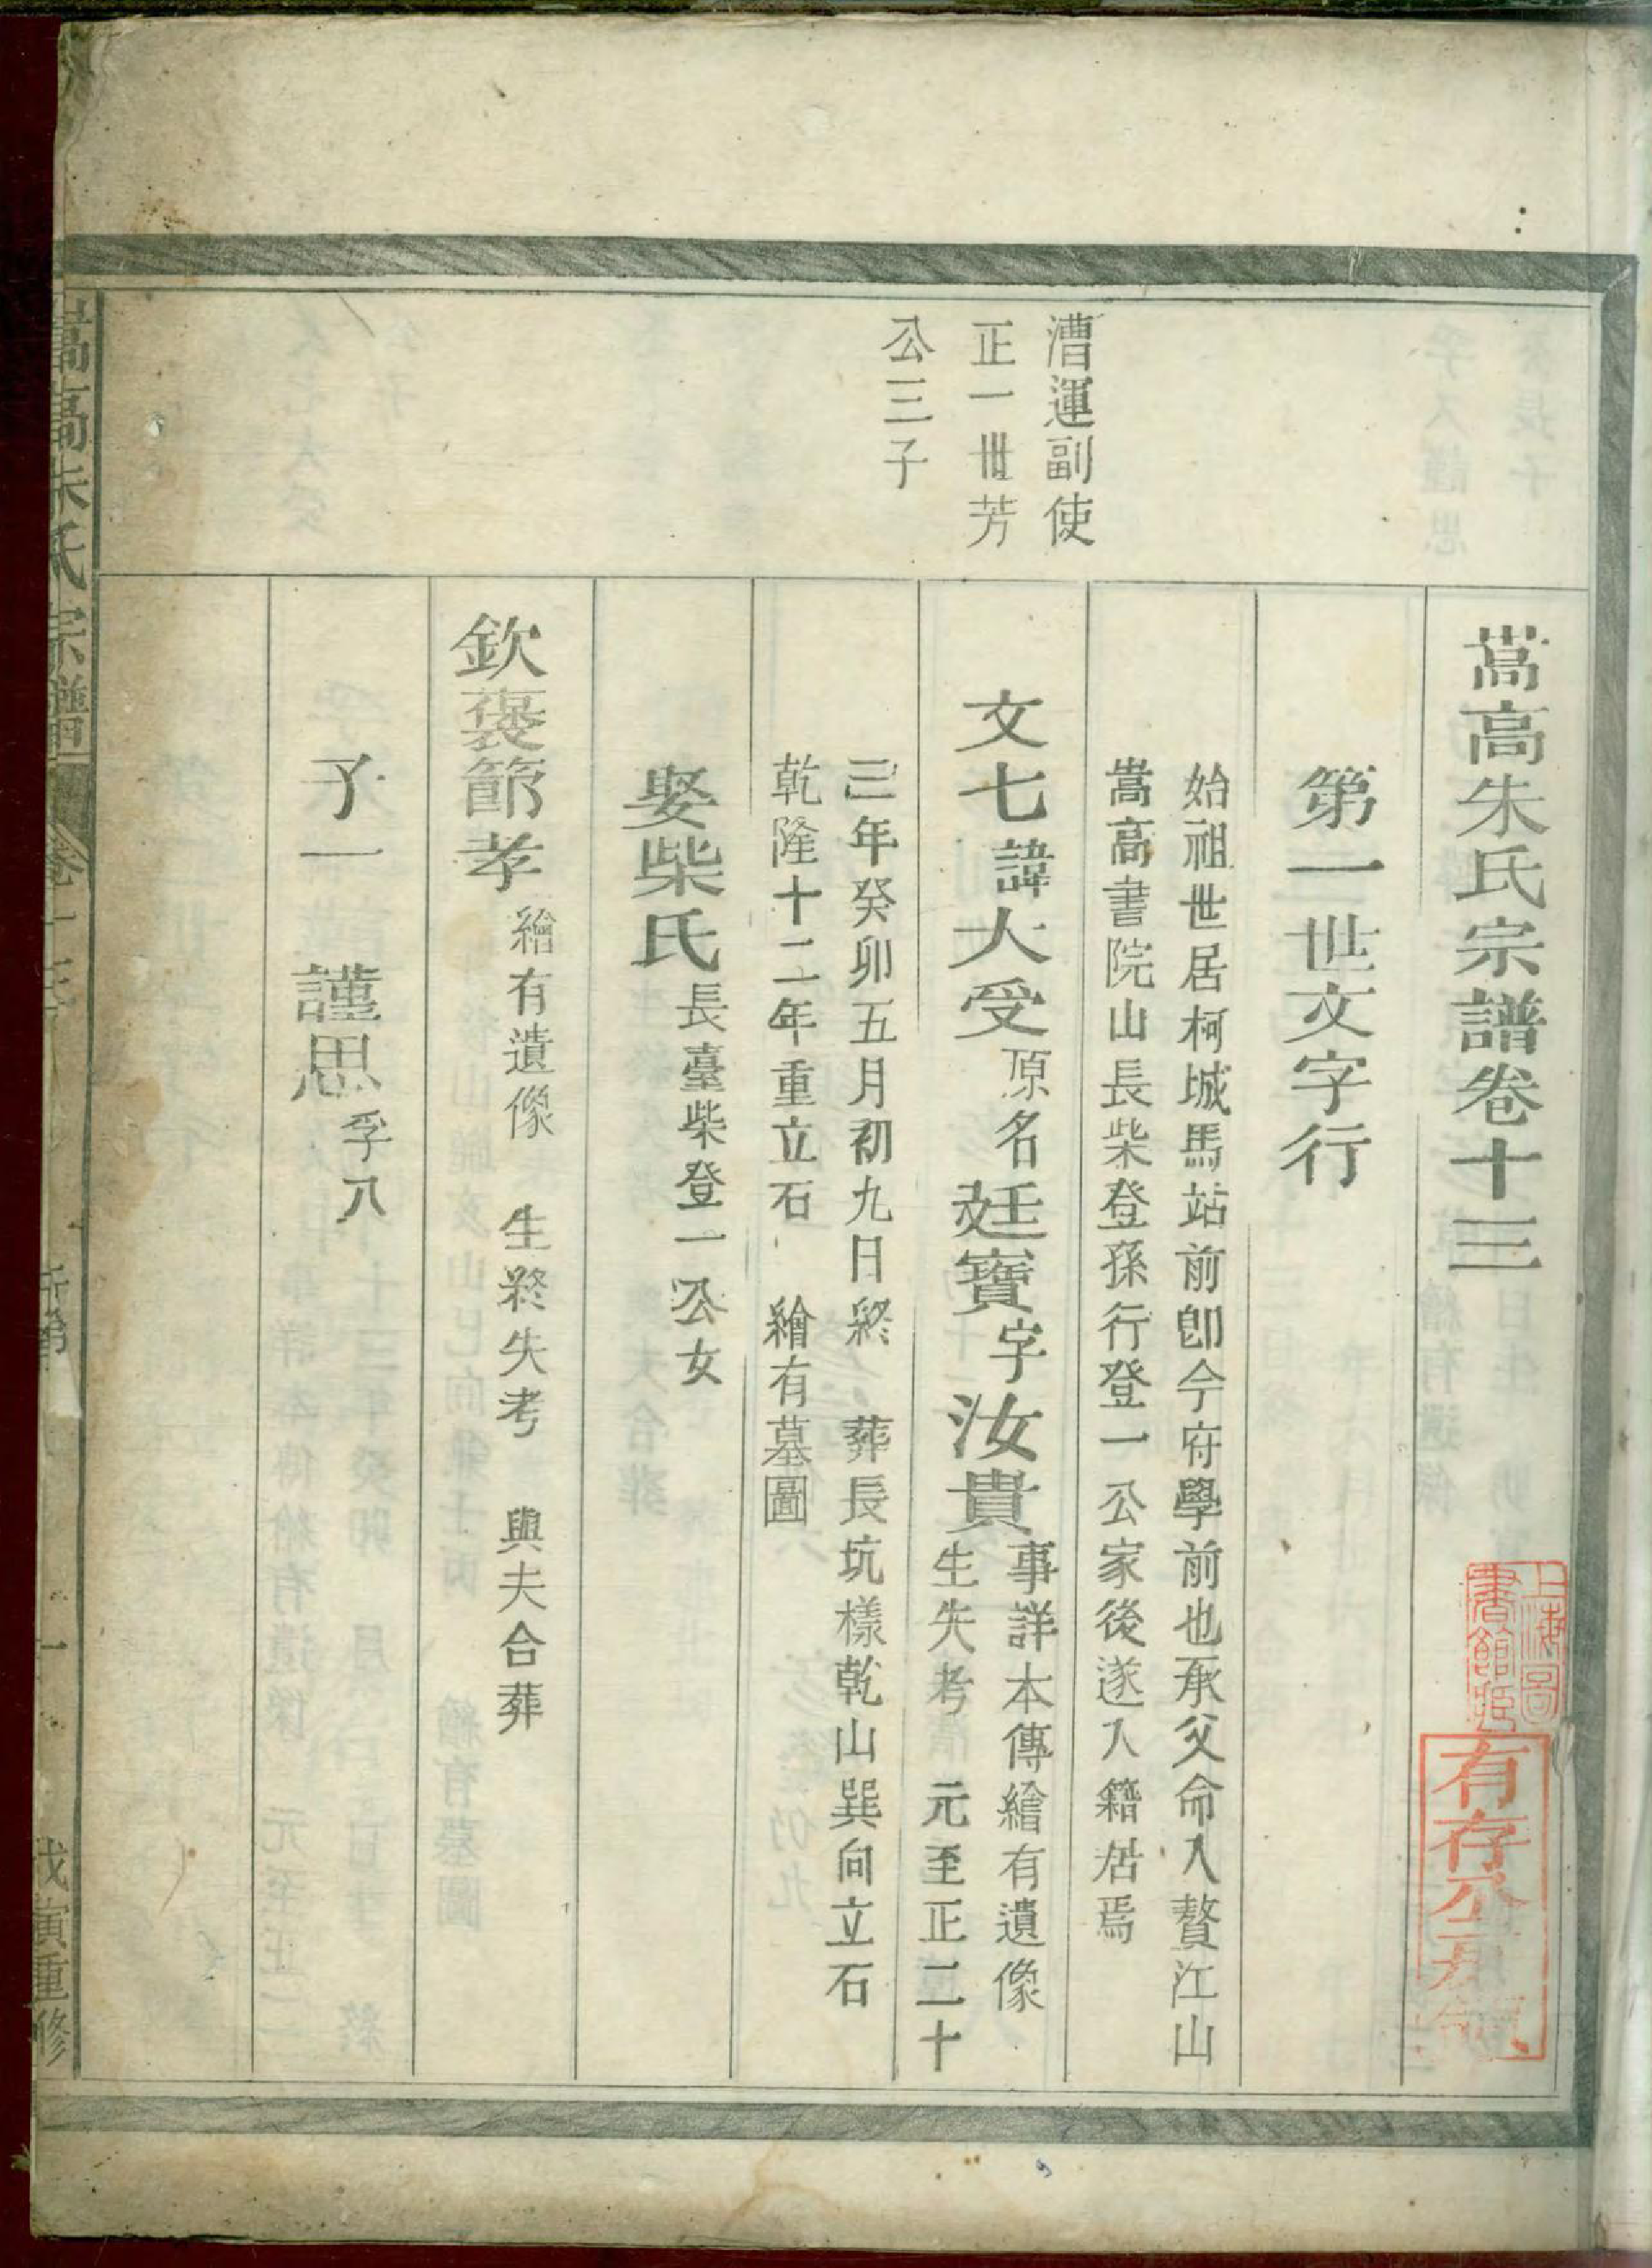 嵩高朱氏宗譜卷十三
第一世文字行
始祖世居柯城馬站前卽今府學前也承父命入贅江山
嵩高書院山長柴登孫行登一公家後遂入籍居焉
漕運副使
正一世芳
公三子
文七諱大受原名廷寶字汝貴事詳本傳繪有遺像
生失考 元至正二十
三年癸卯五月初九日終 葬長坑樣乾山巽向立石
乾隆十二年重立石 繪有墓圖
娶柴氏長臺柴登一公女
欽褒節孝繪有遺像 生終失考 與夫合葬
子一 謹思孚八
嵩高朱氏宗譜
卷十三
一
戊寅重修
上海圖書館藏
有存